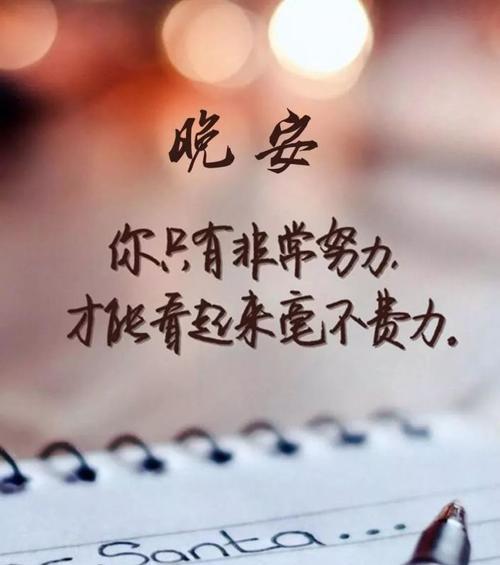 晚安
你只有非常努力,
才能看起来毫不费力。
Santa...